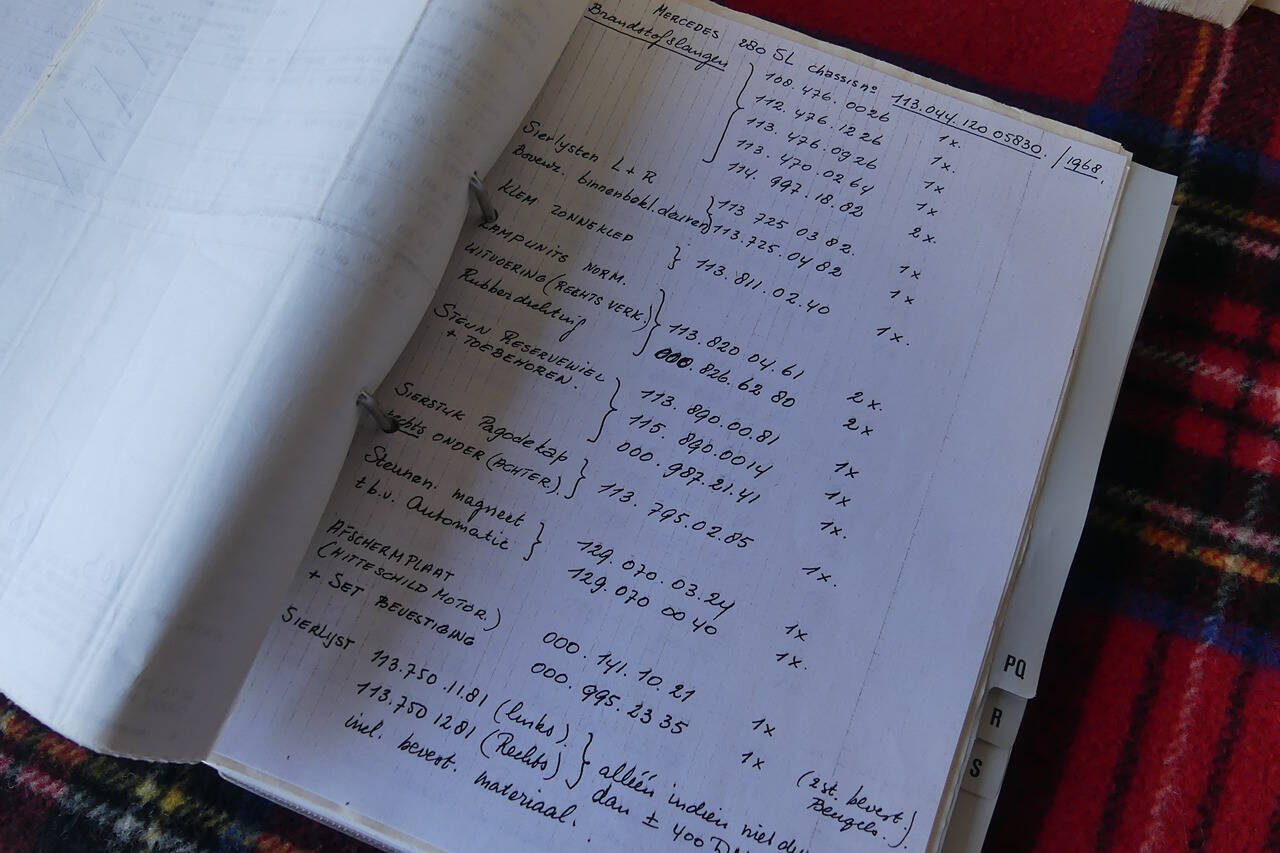 MERCEDES 280 SL chassisno 113.044.120.05830. / 1968.
Brandstofslangen } 108.476.0026 1x.
112.476.1226 1x.
113.476.0926 1x
113.470.0264 1x
114.997.18.82 2x.
Sierlysten L + R } 113 725 03 82. 1x
Bovenz. binnenbekl. deuren 113.725.04 82 1x
KLEM ZONNEKLEP } 113.811.02.40 1x.
LAMPUNITS NORM.
UITVOERING (RECHTS VERK.) } 113.820 04.61 2x.
Rubberdichting 000.826.62 80 2x
STEUN RESERVEWIEL } 113.890.00.81 1x
+ TOEBEHOREN. 115.890.0014 1x
000.987.21.41 1x.
SIERSTUK Pagodekap
rechts ONDER (ACHTER). } 113.795.02.85 1x.
Steunen magneet } 129.070.03.24 1x
t.b.v. Automatic 129.070 00 40 1x.
AFSCHERMPLAAT
(HITTESCHILD MOTOR.) 000.141.10.21 1x
+ SET BEVESTIGING 000.995.23 35 1x (2 st. bevest. Beugels.)
SIERLYST 113.750.11.81 (links).
113.750 1281 (Rechts) } alléén indien niet
incl. bevest. materiaal. dan ± 400
PQ
R
S